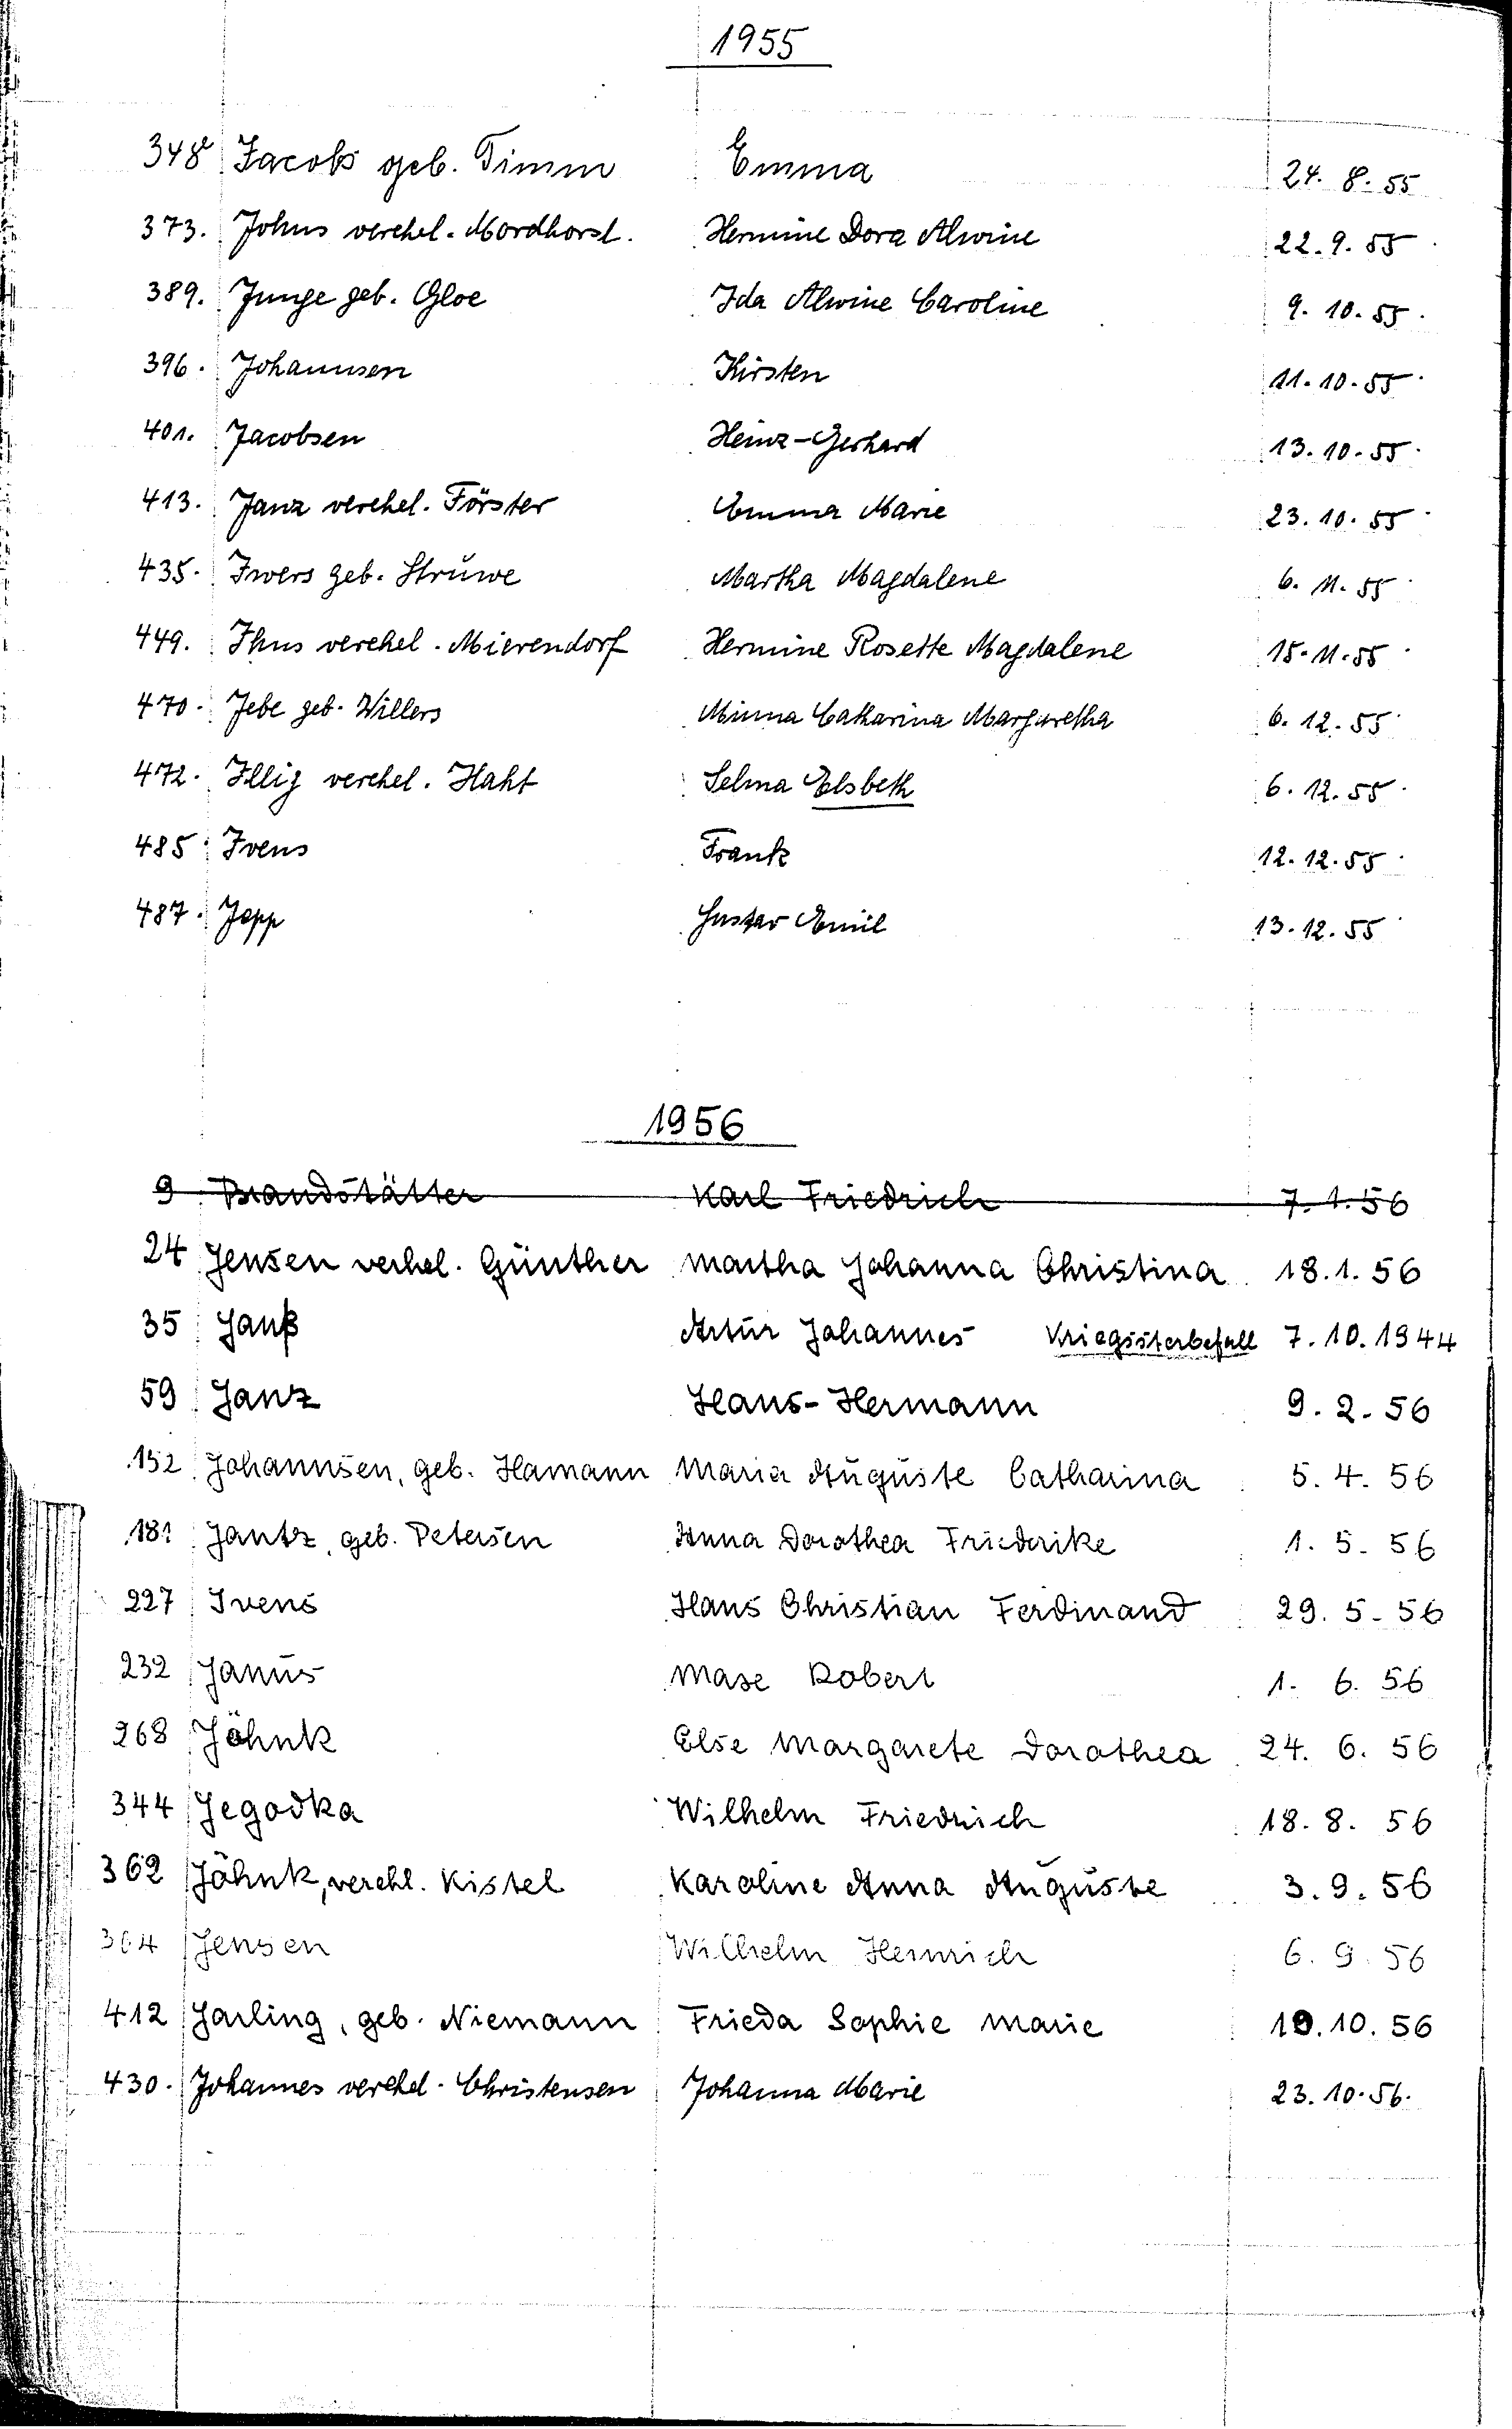 1955
348 Jacobs geb. Timm Emma 24. 8. 55
373. Johns verehel. Mordhorst. Hermine Dora Alwine 22. 9. 55
389. Junge geb. Gloe Ida Alwine Caroline 9. 10. 55
396. Johannsen Kirsten 11. 10. 55
401. Jacobsen Heinz-Gerhard 13. 10. 55
413. Janz verehel. Förster Emma Marie 23. 10. 55
435. Iwers geb. Struwe Martha Magdalene 6. 11. 55
449. Ihns verehel. Mierendorf Hermine Rosette Magdalene 15. 11. 55
470. Jebe geb. Willers Minna Catharina Margaretha 6. 12. 55
472. Illig verehel. Haht Selma Elsbeth 6. 12. 55
485 Ivens Frank 12. 12. 55
487. Jepp Gustav Emil 13. 12. 55
1956
9 Brandstätter Karl Friedrich 7. 1. 56
24 Jensen verhel. Günther Martha Johanna Christina 18. 1. 56
35 Janß Artur Johannes Kriegssterbefall 7. 10. 1944
59 Janz Hans-Hermann 9. 2. 56
152 Johannsen, geb. Hamann Maria Auguste Catharina 5. 4. 56
181 Jantz, geb. Petersen Anna Dorothea Friederike 1. 5. 56
227 Ivens Hans Christian Ferdinand 29. 5. 56
232 Janus Robert 1. 6. 56
268 Jöhnk Else Margarete Dorothea 24. 6. 56
344 Jegodka Wilhelm Friedrich 18. 8. 56
362 Jöhnk, verehl. Kistel Karoline Anna Auguste 3. 9. 56
364 Jensen Wilhelm Heinrich 6. 9. 56
412 Jarling, geb. Niemann Frieda Sophie Marie 10. 56
430. Johannes verehel. Christensen Johanna Marie 23. 10. 56.